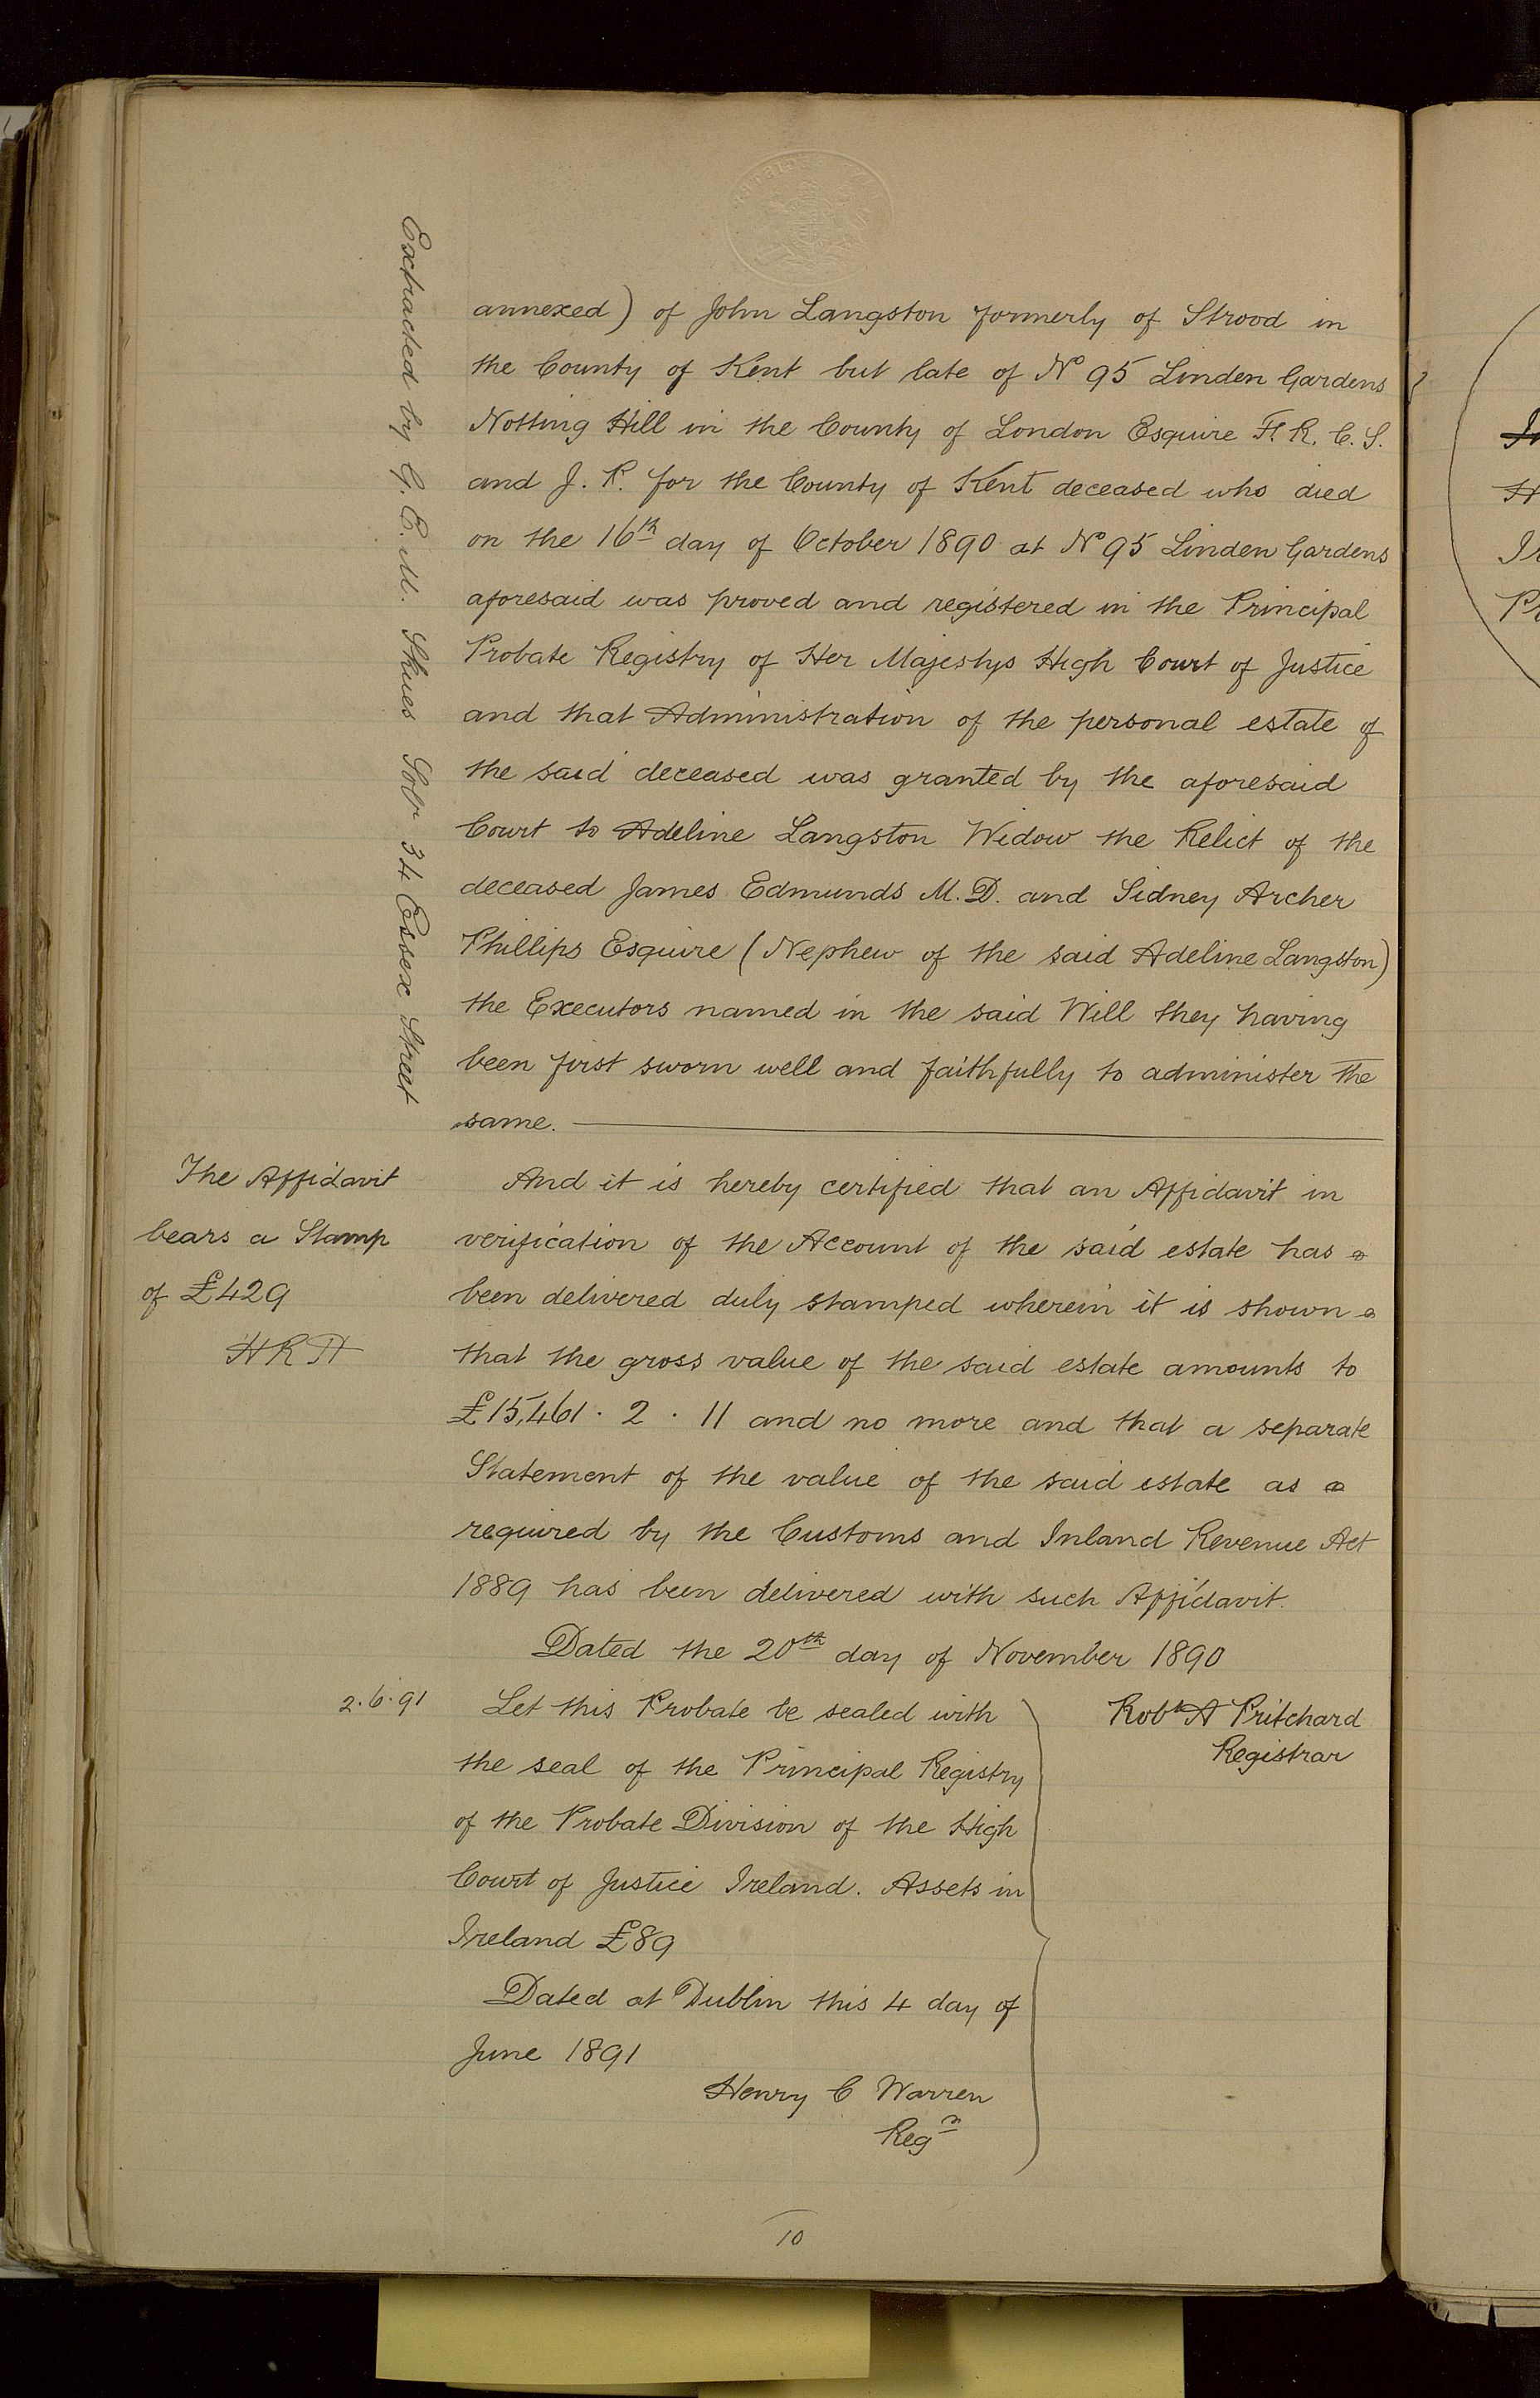 annexed) of John Langston formerly of Strood in
the County of Kent but late of No 95 Linden Gardens
Notting Hill in the County of London Esquire F. R. C. S.
and J. P. for the County of Kent deceased who died
on the 16th day of October 1890 at No 95 Linden Gardens
aforesaid was proved and registered in the Principal
Probate Registry of Her Majestys High Court of Justice
and that Administration of the personal estate of
the said deceased was granted by the aforesaid
Court to Adeline Langston Widow the Relict of the
deceased James Edmunds M. D. and Sidney Archer
Phillips Esquire (Nephew of the said Adeline Langston)
the Executors named in the said Will they having
been first sworn well and faithfully to administer the
same.
Extracted by G. E. M. Skues Solr 34 Essex Street
The Affidavit
bears a Stamp
of £429
H R H
And it is hereby certified that an Affidavit in
verification of the Account of the said estate has
been delivered duly stamped wherein it is shown
that the gross value of the said estate amounts to
£15,461 . 2 . 11 and no more and that a separate
Statement of the value of the said estate as
required by the Customs and Inland Revenue Act
1889 has been delivered with such Affidavit.
Dated the 20th day of November 1890
Robt A Pritchard
Registrar
2.6.91
Let this Probate be sealed with
the seal of the Principal Registry
of the Probate Division of the High
Court of Justice Ireland. Assets in
Ireland £89
Dated at Dublin this 4 day of
June 1891
Henry C Warren
Regr
10